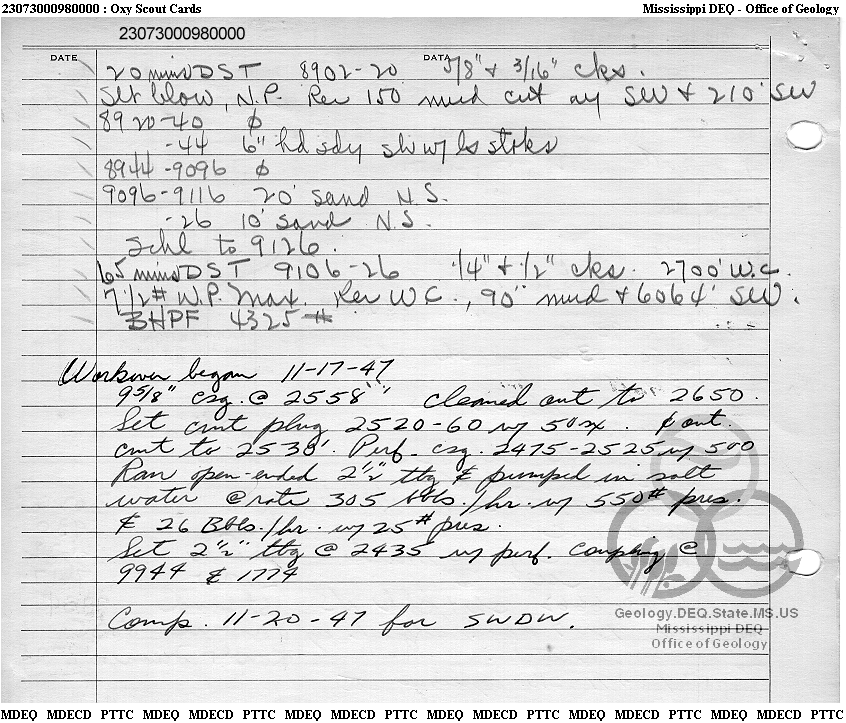 23073000980000 : Oxy Scout Cards
Mississippi DEQ - Office of Geology
23073000980000
DATE
DATA
20 mins DST 8902-20 5/8" & 3/16" cks.
Slt blow, N.P. Rec 150 mud cut w/ SW & 210' SW
8920-40 ϕ
-44 6" hd sdy sh w/ ls stks
8944-9096 ϕ
9096-9116 20' sand N.S.
-26 10' sand N.S.
Schl to 9126.
65 mins DST 9106-26 1/4" & 1/2" cks. 2700' W.C.
7 1/2# W.P. Max. Rec W C., 90' mud & 6064' SW.
BHPF 4325#
Workover began 11-17-47
9 5/8" csg. @ 2558" cleaned out to 2650.
Set cmt plug 2520-60 w/ 50 sx. ϕ out.
cmt to 2530'. Perf. csg. 2475-2525 w/ 500
Ran open-ended 2 1/2" tbg & pumped in salt
water @ rate 305 bbls./hr. w/ 550# pres.
& 26 Bbls./hr. w/ 25# pres.
Set 2 1/2" tbg @ 2435 w/ perf. coupling @
9944 & 1774
Comp. 11-20-47 for SWDW.
Geology.DEQ.State.MS.US
Mississippi DEQ
Office of Geology
MDEQ MDECD PTTC MDEQ MDECD PTTC MDEQ MDECD PTTC MDEQ MDECD PTTC MDEQ MDECD PTTC MDEQ MDECD PTTC